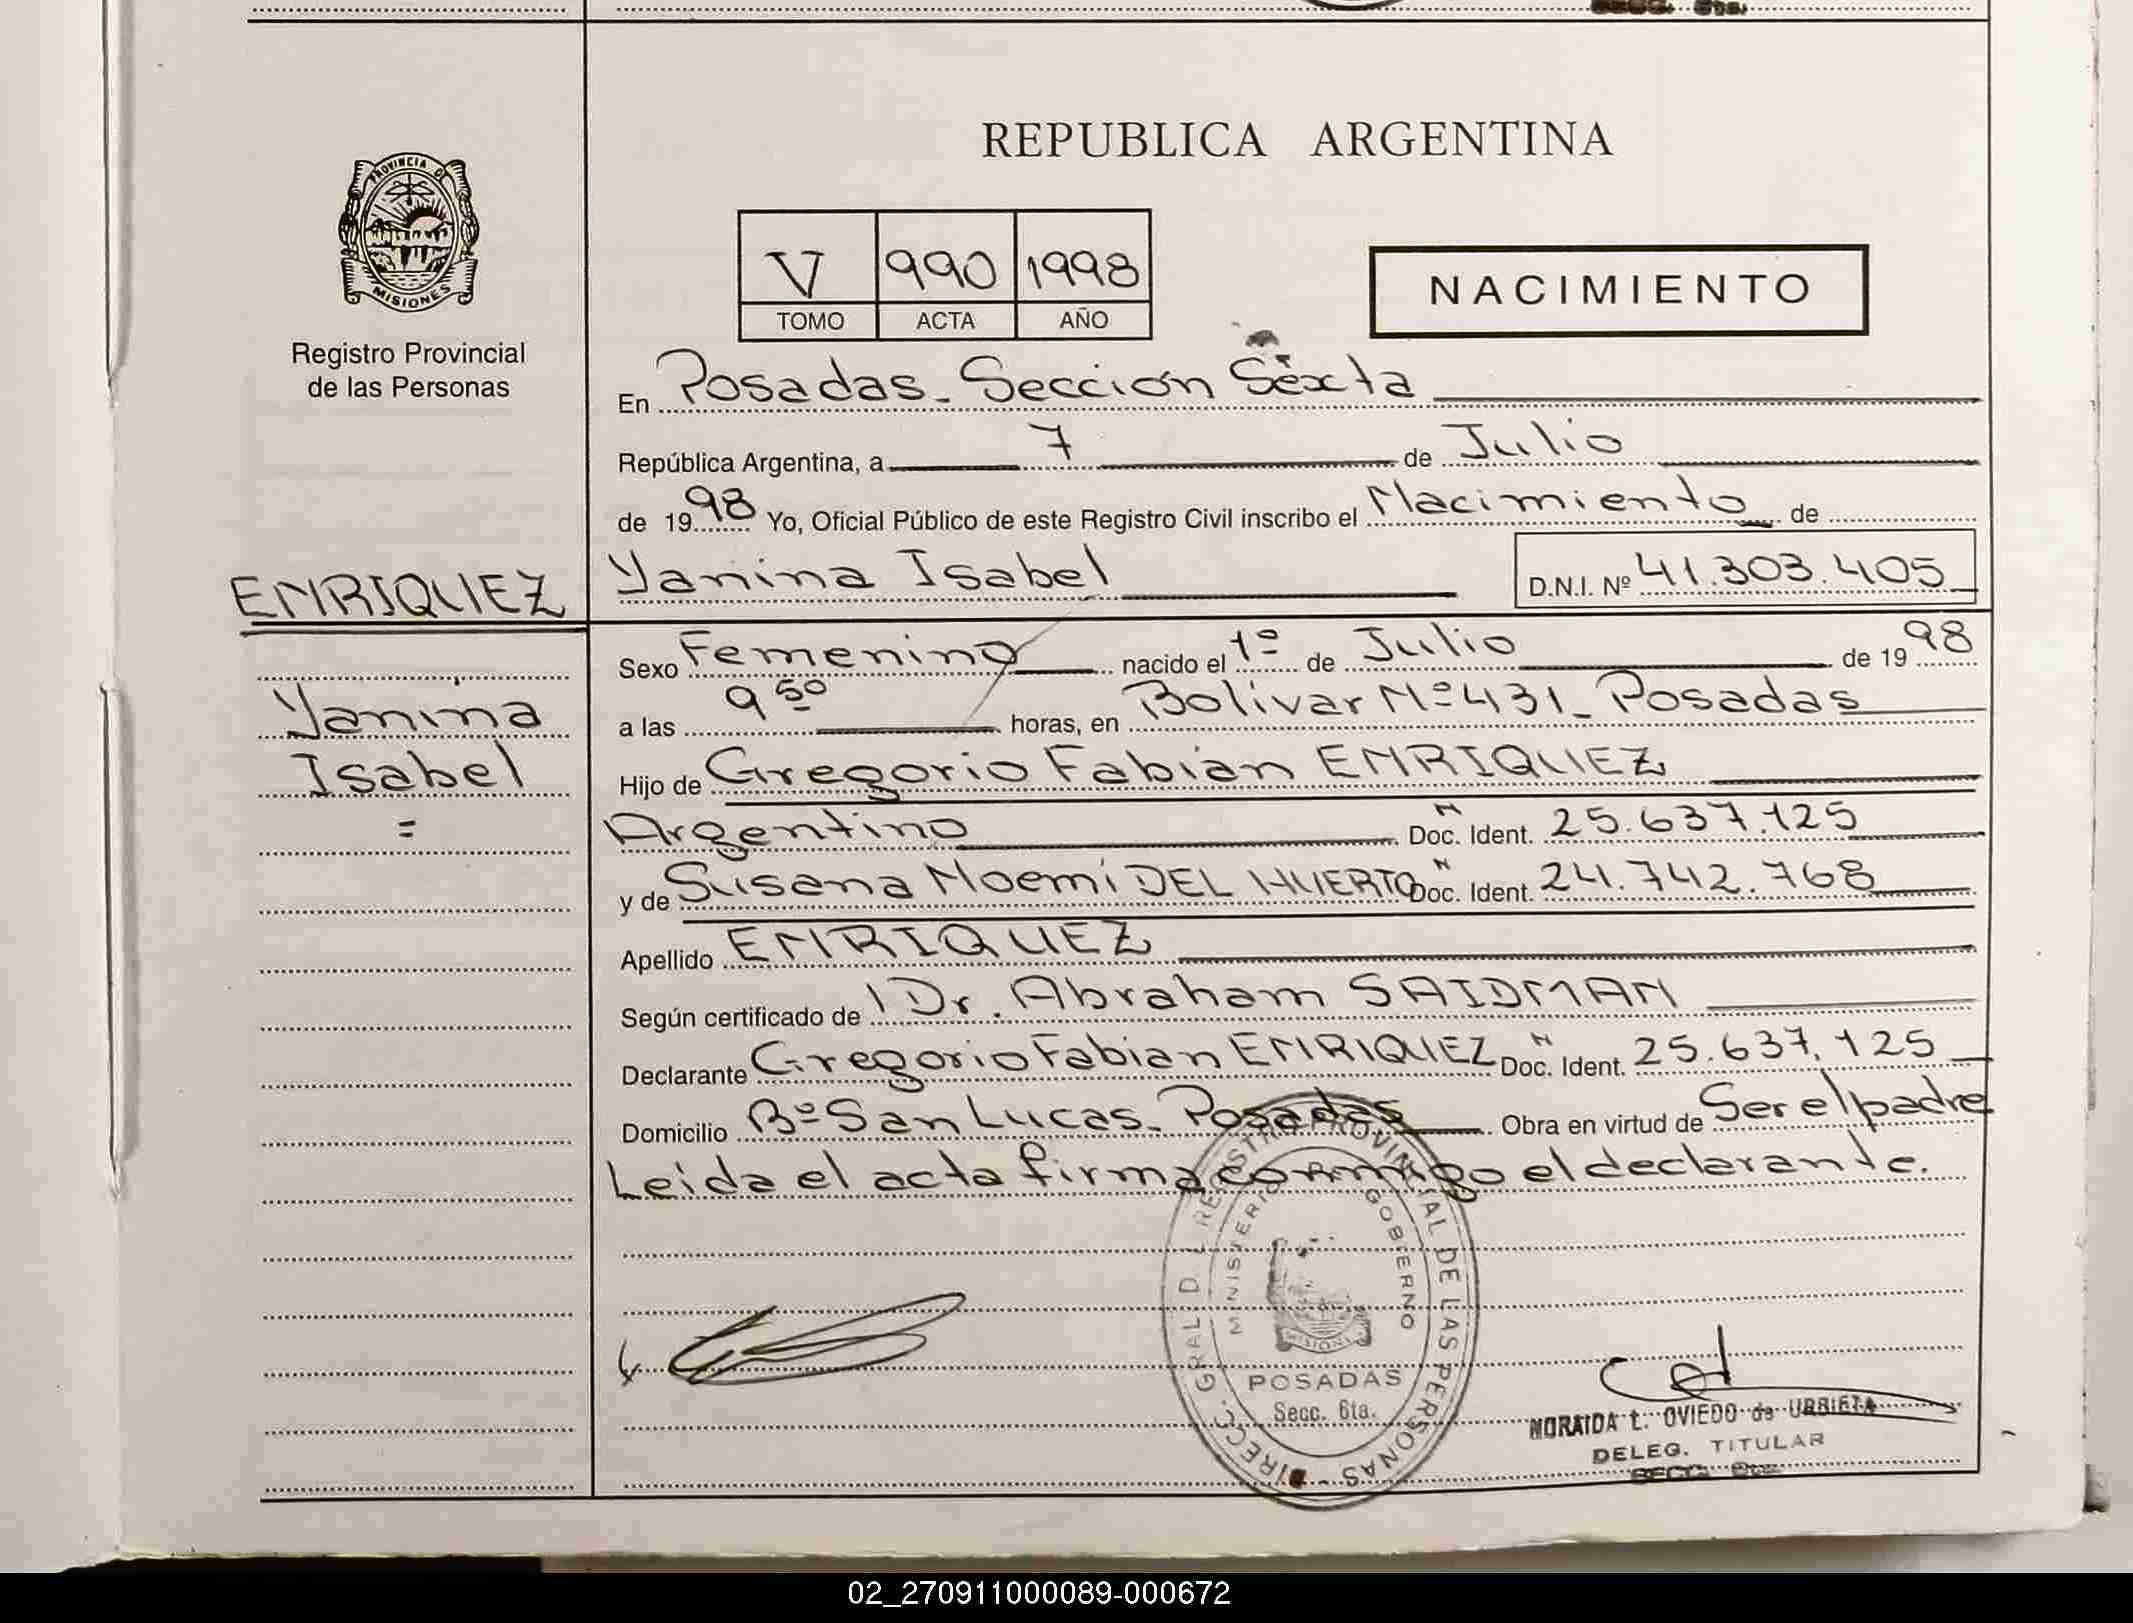 REPUBLICA ARGENTINA
PROVINCIA DE
MISIONES
Registro Provincial
de las Personas
V 990 1998
TOMO ACTA AÑO
NACIMIENTO
En Posadas - Sección Sexta
República Argentina, a 7 de Julio
de 1998 Yo, Oficial Público de este Registro Civil inscribo el Nacimiento de
ENRIQUEZ
Yanina Isabel D.N.I. Nº 41.303.405
Sexo Femenino nacido el 1º de Julio de 1998
Yanina
Isabel
=
a las 9 50 horas, en Bolivar Nº 431 - Posadas
Hijo de Gregorio Fabian ENRIQUEZ
Argentino N Doc. Ident. 25.637.125
y de Susana Noemí DEL HUERTO N Doc. Ident. 24.742.768
Apellido ENRIQUEZ
Según certificado de Dr. Abraham SAIDMAN
Declarante Gregorio Fabian ENRIQUEZ N Doc. Ident. 25.637.125
Domicilio Bº San Lucas - Posadas Obra en virtud de Ser el padre
Leida el acta firma conmigo el declarante.
DIRECC. GRAL D L REGISTRO PROVINCIAL DE LAS PERSONAS
MINISTERIO GOBIERNO
MISIONES
POSADAS
Secc. 6ta.
NORAIDA L. OVIEDO de URRIETA
DELEG. TITULAR
SECC. 6ta.
02_270911000089-000672